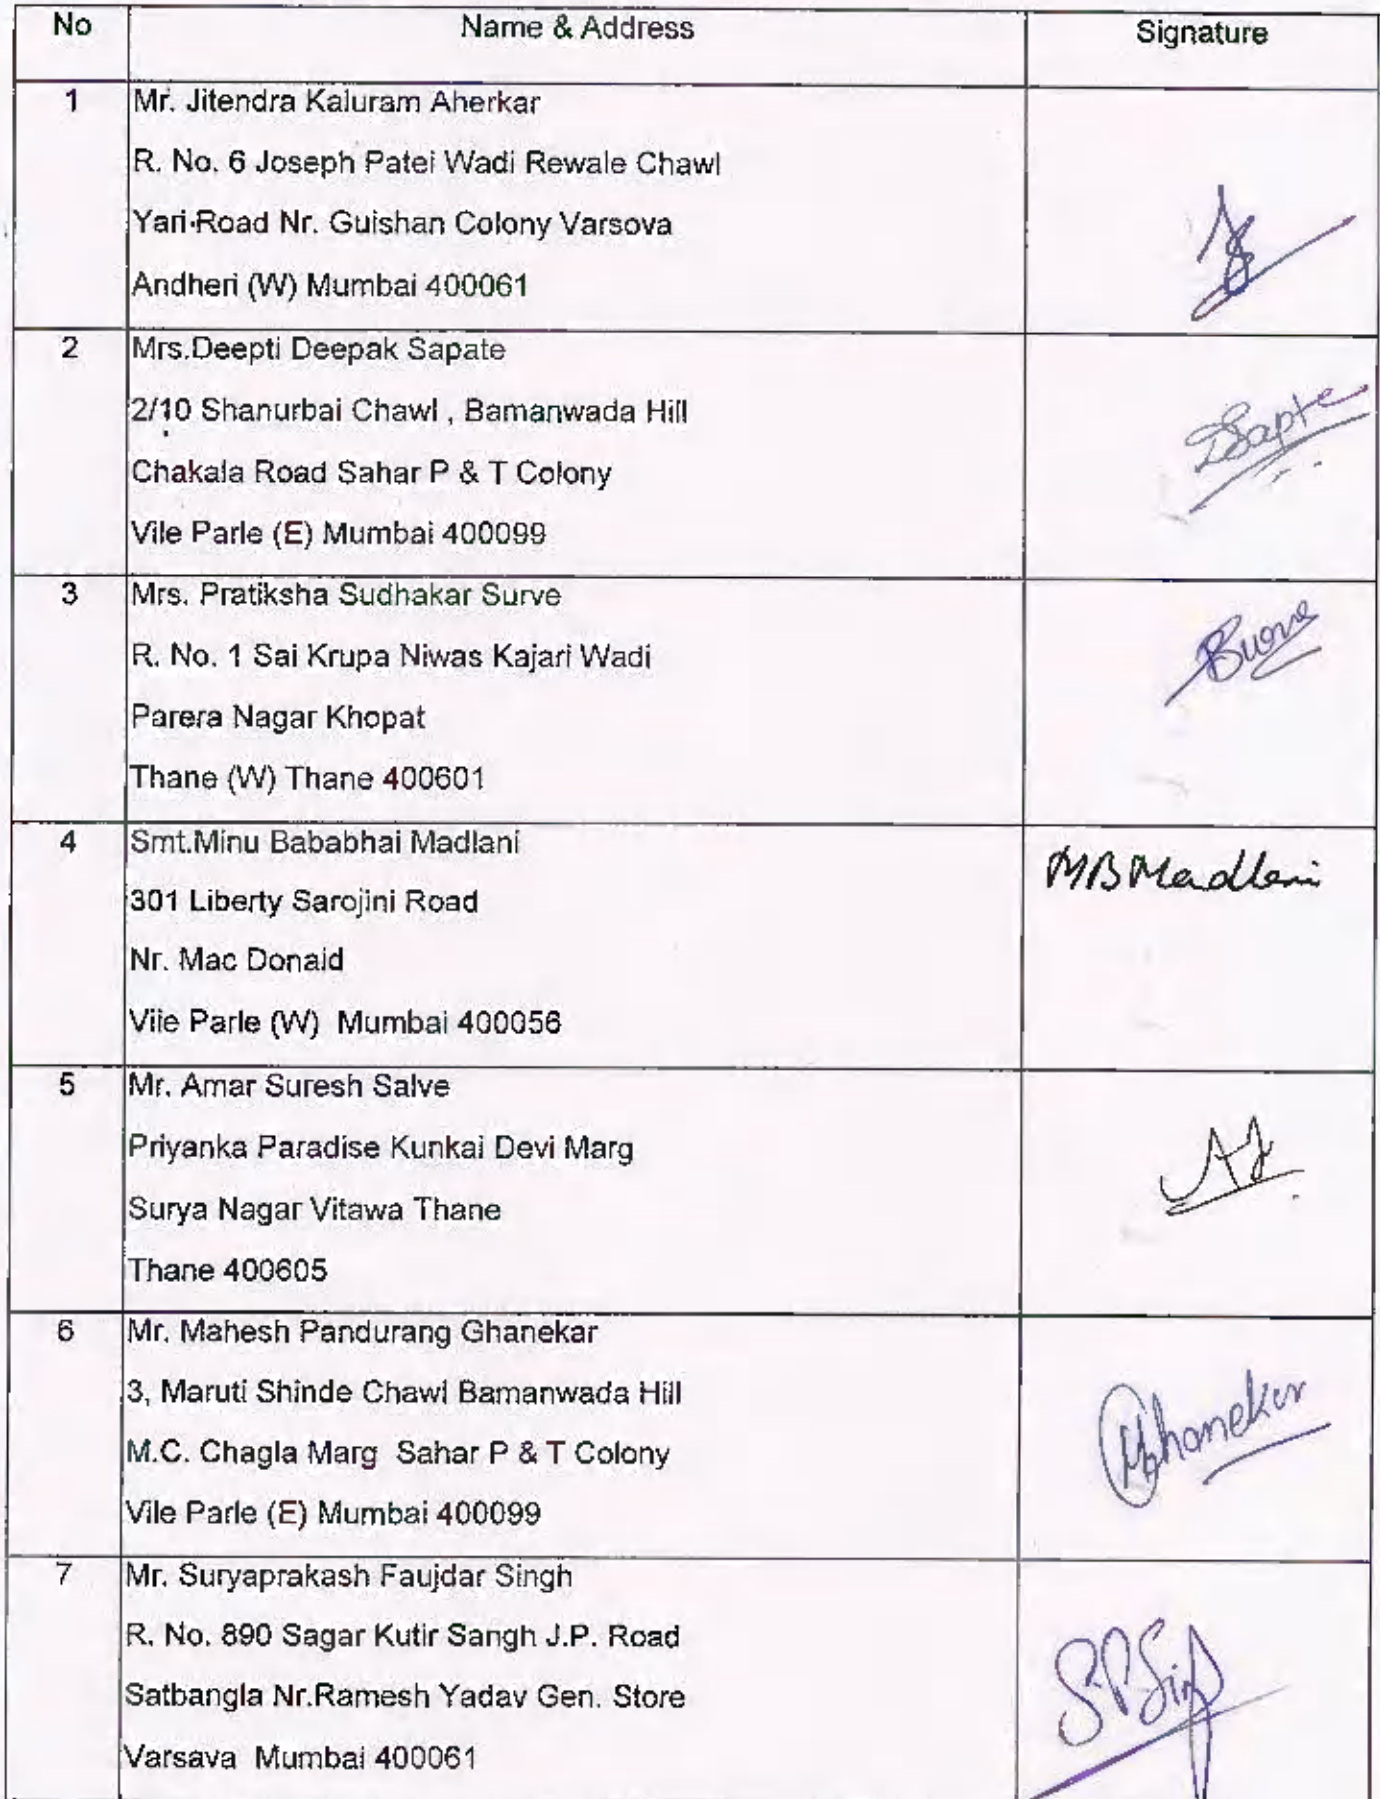 No Name & Address Signature
1 Mr. Jitendra Kaluram Aherkar
R. No. 6 Joseph Patel Wadi Rewale Chawl
Yari Road Nr. Gulshan Colony Varsova
Andheri (W) Mumbai 400061
2 Mrs.Deepti Deepak Sapate
2/10 Shanurbai Chawl , Bamanwada Hill
DSapte
Chakala Road Sahar P & T Colony
Vile Parle (E) Mumbai 400099
3 Mrs. Pratiksha Sudhakar Surve
R. No. 1 Sai Krupa Niwas Kajari Wadi
Parera Nagar Khopat
Thane (W) Thane 400601
4 Smt.Minu Bababhai Madlani
MBMadlani
301 Liberty Sarojini Road
Nr. Mac Donald
Vile Parle (W) Mumbai 400056
5 Mr. Amar Suresh Salve
Priyanka Paradise Kunkai Devi Marg
Surya Nagar Vitawa Thane
Thane 400605
6 Mr. Mahesh Pandurang Ghanekar
3, Maruti Shinde Chawl Bamanwada Hill
M.C. Chagla Marg Sahar P & T Colony
Vile Parle (E) Mumbai 400099
7 Mr. Suryaprakash Faujdar Singh
R. No. 890 Sagar Kutir Sangh J.P. Road
Satbangla Nr.Ramesh Yadav Gen. Store
Varsava Mumbai 400061